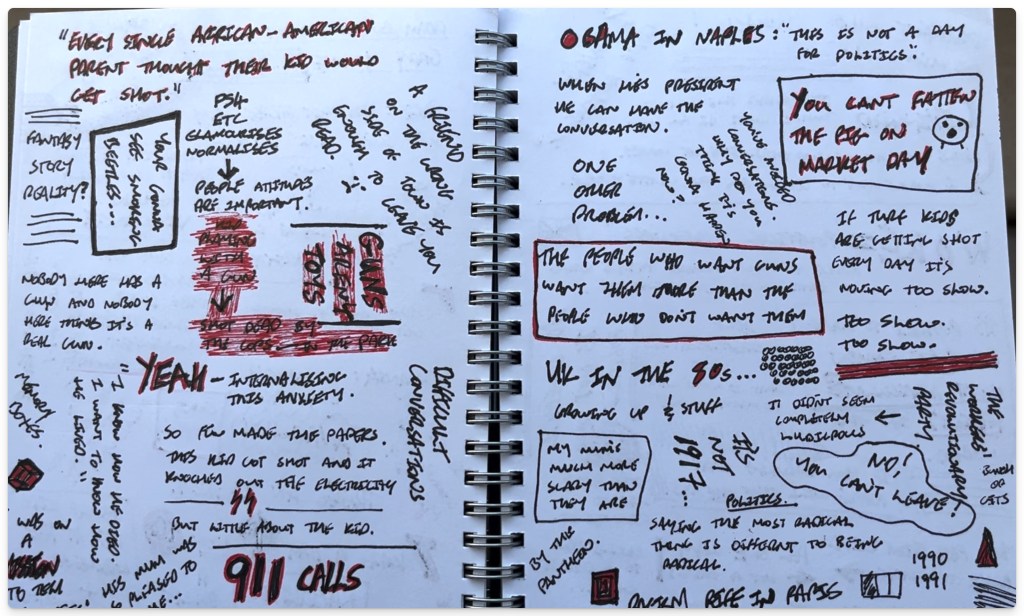 "EVERY SINGLE AFRICAN-AMERICAN
PARENT THOUGHT THEIR KID WOULD
GET SHOT."
FANTASY
STORY
REALITY?
YOUR GONNA
SEE SMOKING
BEETLES...
PS4
ETC
GLAMOURISES
NORMALISES
PEOPLE ATTITUDES
ARE IMPORTANT.
A FRIEND
ON THE WRONG
SIDE OF TOWN IS
ENOUGH TO LEAVE YOU
DEAD.
KID
PLAYING
WITH
A GUN.
SHOT DEAD BY
THE COPS - IN THE PARK
GUNS
ALIENS
TOYS
NOBODY HERE HAS A
GUN AND NOBODY
HERE THINKS IT'S A
REAL GUN.
YEAH - INTERNALISING
THIS ANXIETY.
DIFFICULT
CONVERSATIONS
SO FEW MADE THE PAPERS.
THIS KID GOT SHOT AND IT
KNOCKED OUT THE ELECTRICITY
BUT LITTLE ABOUT THE KID.
911 CALLS
"I KNOW HOW HE DIED
I WANT TO KNOW HOW
HE LIVED."
WAS ON
A
TO TELL
HIS MUM WAS
PLEASED TO
OBAMA IN NAPLES: "THIS IS NOT A DAY
FOR POLITICS".
WHEN HES PRESIDENT
HE CAN HAVE THE
CONVERSATION.
YOU'VE AVOIDED
CONVERSATIONS.
WHY DO YOU
THINK IT'S
GONNA WORK
NOW?
YOU CANT FATTEN
THE PIG ON
MARKET DAY
ONE
OTHER
PROBLEM...
IF THREE KIDS
ARE GETTING SHOT
EVERY DAY IT'S
MOVING TOO SLOW.
TOO SLOW.
TOO SLOW.
THE PEOPLE WHO WANT GUNS
WANT THEM MORE THAN THE
PEOPLE WHO DON'T WANT THEM
UK IN THE 80s...
GROWING UP & STUFF
IT DIDN'T SEEM
COMPLETELY
LUDICROUS
THE
WORKERS'
REVOLUTIONARY
PARTY
MY MUM'S
MUCH MORE
SCARY THAN
THEY ARE
IT'S
NOT
1917...
YOU NO!
CAN'T LEAVE!
POLITICS
SAYING THE MOST RADICAL
THING IS DIFFERENT TO BEING
RADICAL.
BY THE
PANTHEON.
1990
1991
RACISM RIFE IN PARIS